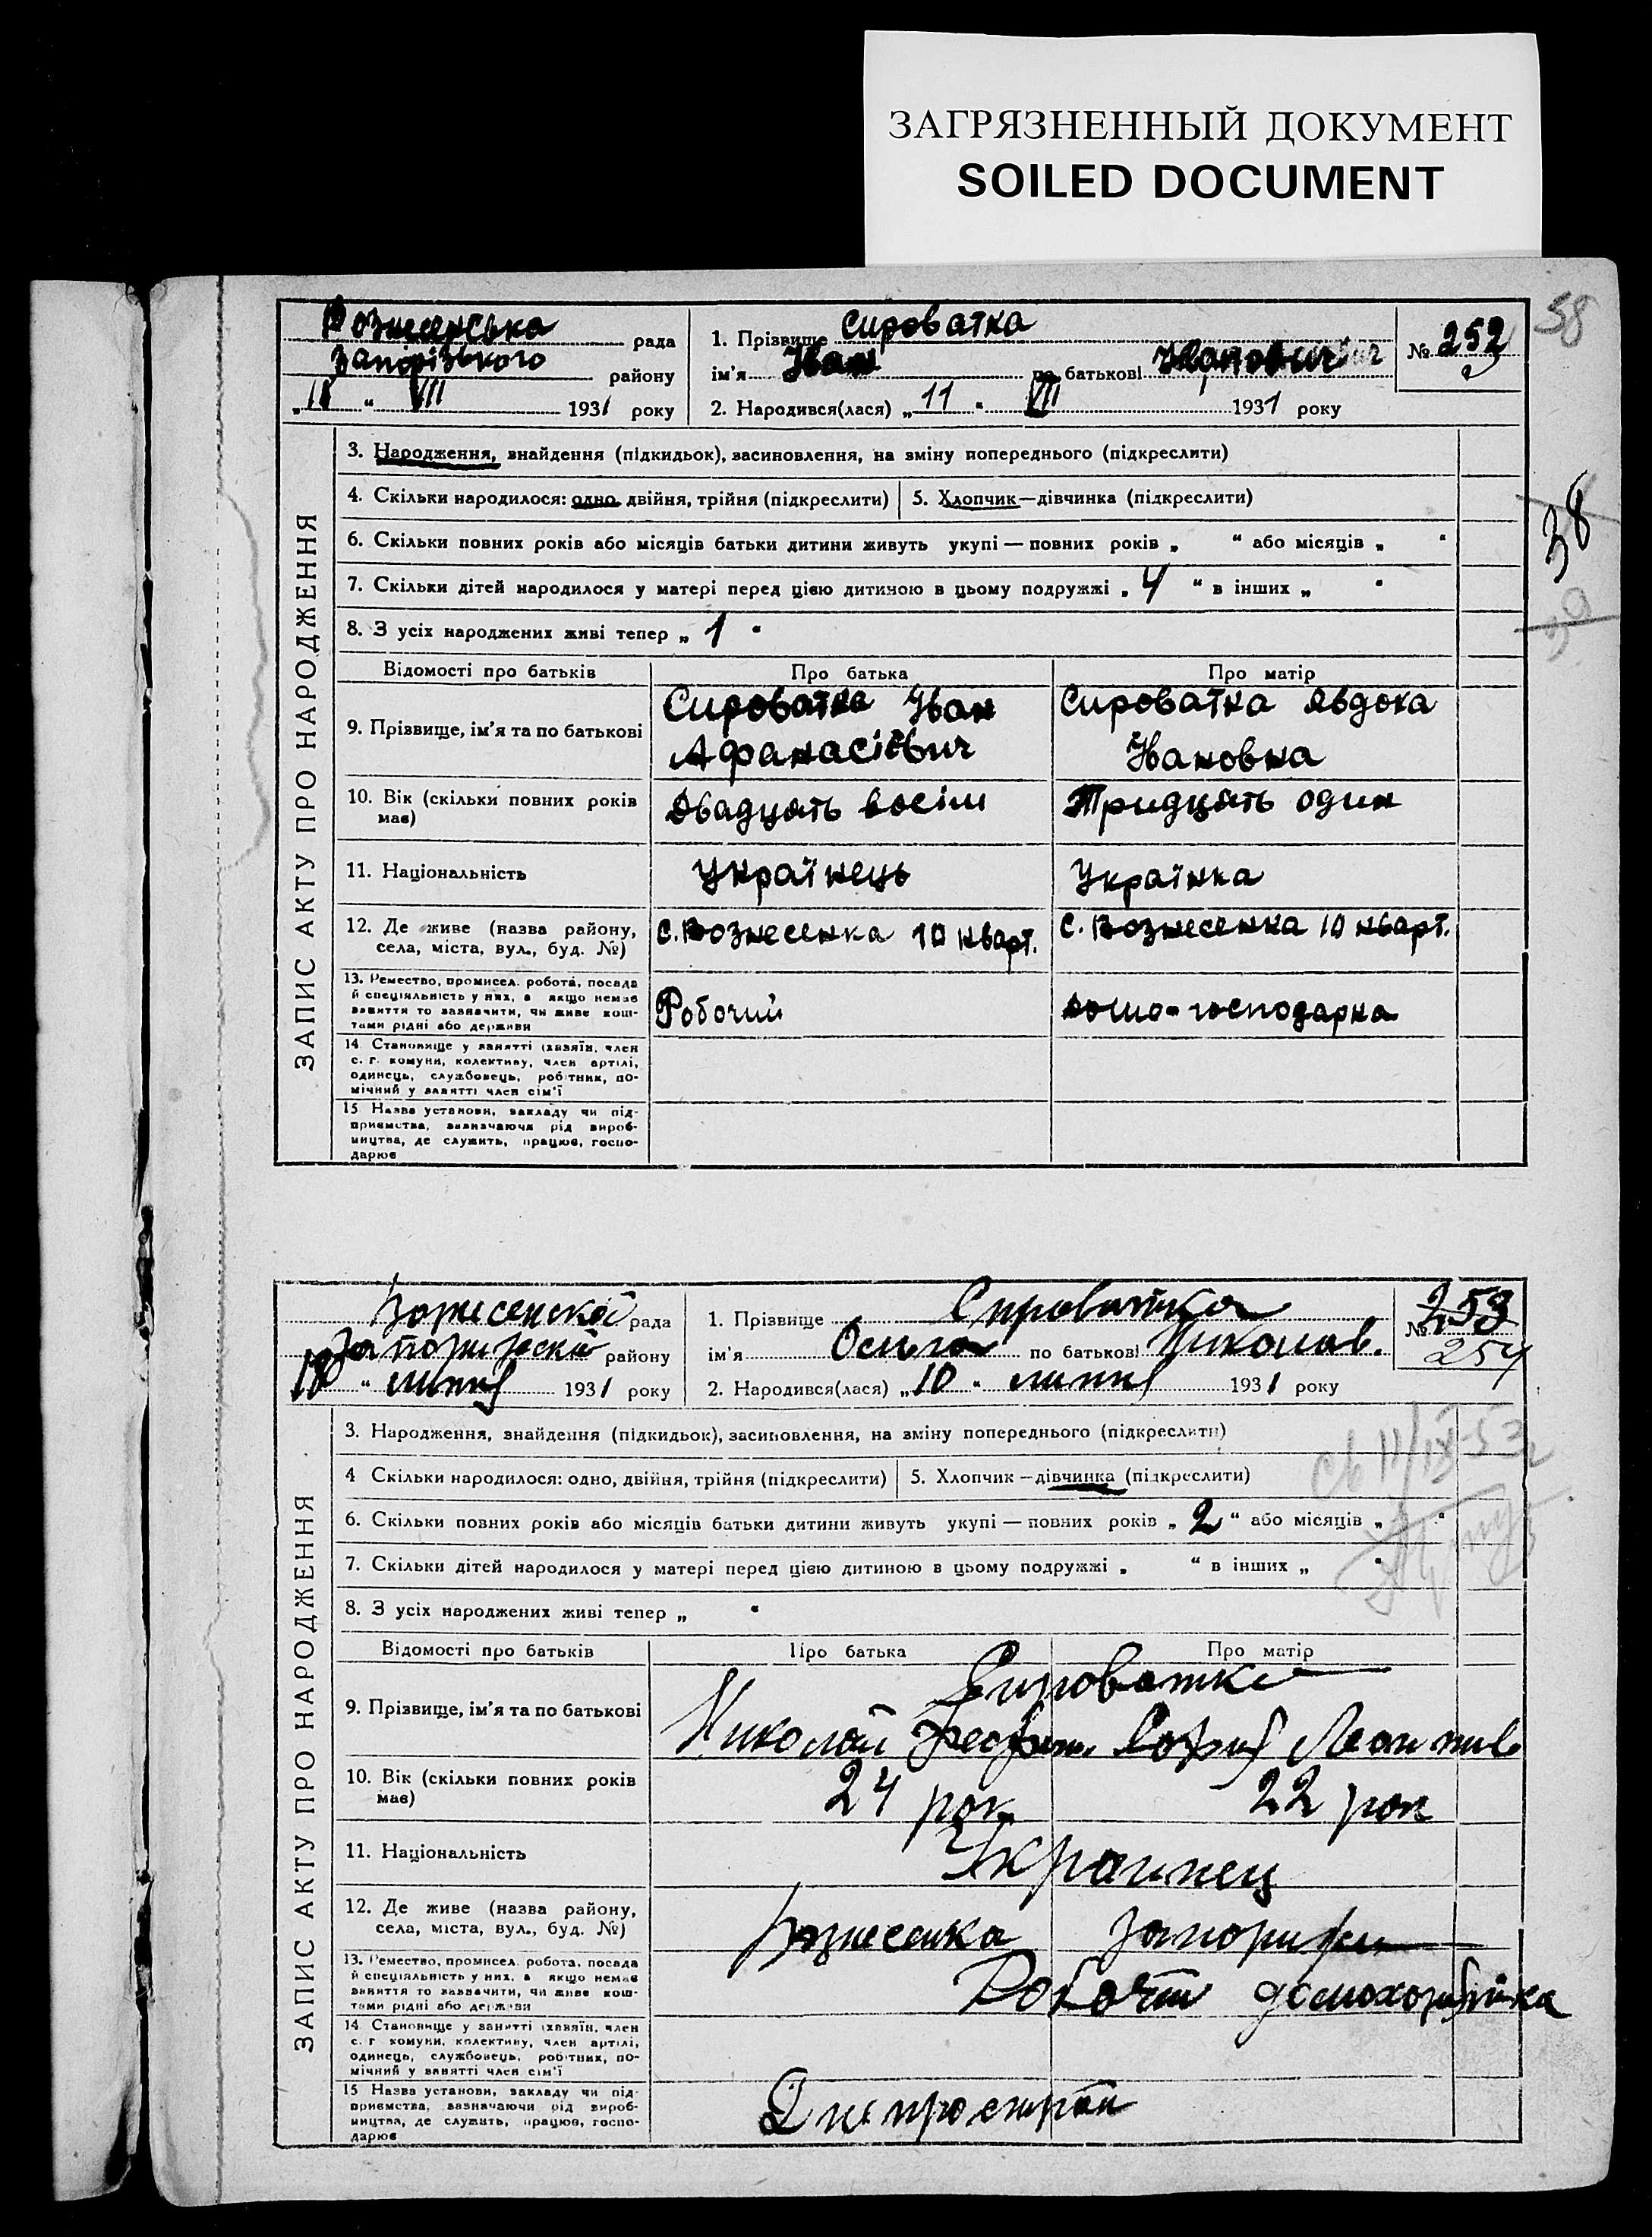 ЗАГРЯЗНЕННЫЙ ДОКУМЕНТ
SOILED DOCUMENT
58
Вознесенська рада
Запорізького району
"18" VII 1931 року
1. Прізвище Сироватка
ім'я Іван по батькові Іванович
2. Народився(лася) "11" VII 1931 року
№ 252
ЗАПИС АКТУ ПРО НАРОДЖЕННЯ
3. Народження, знайдення (підкидьок), засиновлення, на зміну попереднього (підкреслити)
4. Скільки народилося: одно, двійня, трійня (підкреслити) 5. Хлопчик—дівчинка (підкреслити)
38
6. Скільки повних років або місяців батьки дитини живуть укупі — повних років „ “ або місяців „ “
7. Скільки дітей народилося у матері перед цією дитиною в цьому подружжі „ 4 “ в інших „ “
8. З усіх народжених живі тепер „ 1 “
Відомості про батьків Про батька Про матір
9. Прізвище, ім'я та по батькові
Сироватка Іван
Афанасієвич
Сироватка Явдоха
Івановна
10. Вік (скільки повних років має)
Двадцать восім
Тридцять один
11. Національність
Українець
Українка
12. Де живе (назва району, села, міста, вул., буд. №)
С. Вознесенка 10 кварт.
С. Вознесенка 10 кварт.
13. Ремество, промисел, робота, посада
й спеціяльність у них, а якщо немає
заняття то зазначити, чи живе кош-
тами рідні або держави
Робочий
домо-господарка
14. Становище у занятті (хазяїн, член
с. г. комуни, колективу, член артілі,
одинець, службовець, робітник, по-
мічний у занятті член сім'ї
15. Назва установи, закладу чи під-
приємства, зазначаючи рід вироб-
ництва, де служить, працює, госпо-
дарює
Вознесенской рада
Запорижской району
18 " липня 1931 року
1. Прізвище Сироватка
ім'я Ольга по батькові Николав.
2. Народився(лася) „ 10 " липня 1931 року
№ 253
254
ЗАПИС АКТУ ПРО НАРОДЖЕННЯ
3. Народження, знайдення (підкидьок), засиновлення, на зміну попереднього (підкреслити)
4 Скільки народилося: одно, двійня, трійня (підкреслити) 5. Хлопчик—дівчинка (підкреслити)
6. Скільки повних років або місяців батьки дитини живуть укупі — повних років „ 2 “ або місяців „ “
7. Скільки дітей народилося у матері перед цією дитиною в цьому подружжі „ “ в інших „ “
8. З усіх народжених живі тепер „ “
Відомості про батьків Про батька Про матір
9. Прізвище, ім'я та по батькові
Сироватка
Николай София
10. Вік (скільки повних років має)
24 рок
22 рок
11. Національність
Украинец
12. Де живе (назва району, села, міста, вул., буд. №)
Вознесенка
13. Ремество, промисел, робота, посада
й спеціяльність у них, а якщо немає
заняття то зазначити, чи живе кош-
тами рідні або держави
Робочий домохозяйка
14 Становище у занятті (хазяїн, член
с. г. комуни, колективу, член артілі,
одинець, службовець, робітник, по-
мічний у занятті член сім'ї
15 Назва установи, закладу чи під-
приємства, зазначаючи рід вироб-
ництва, де служить, працює, госпо-
дарює
Днепрострой